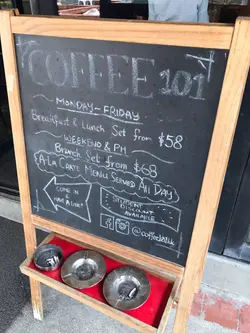 COFFEE 101
MONDAY~FRIDAY
Breakfast & Lunch Set from $58
WEEKEND & PH
Brunch Set from $68
(A La Carte Menu Served All Day)
COME IN
HAVE A LOOK!
STUDENT
DISCOUNT
AVAILABLE